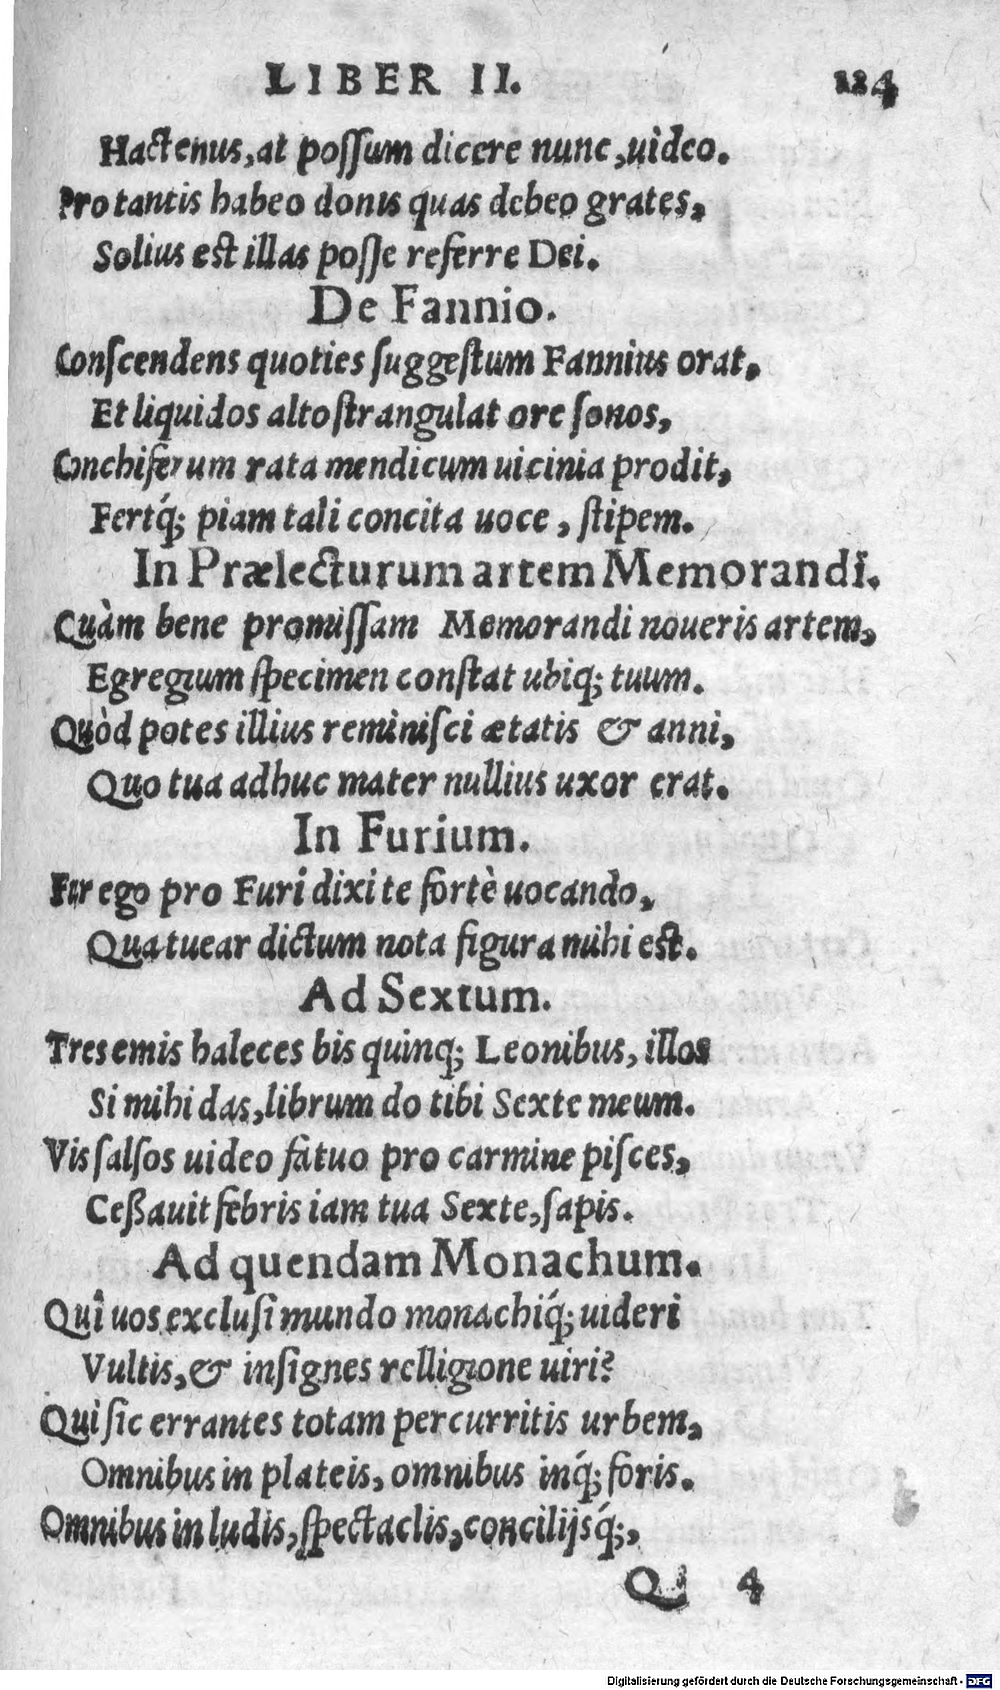 LIBER II. 124
Hactenus, at possum dicere nunc, uideo.
Pro tantis habeo donis quas debeo grates,
Solius est illas posse referre Dei.
De Fannio.
Conscendens quoties suggestum Fannius orat,
Et liquidos alto strangulat ore sonos,
Conchiferum rata mendicum uicinia prodit,
Fertq́; piam tali concita uoce, stipem.
In Prælecturum artem Memorandi.
Quàm bene promissam Memorandi noueris artem,
Egregium specimen constat ubiq; tuum.
Quòd potes illius reminisci ætatis & anni,
Quo tua adhuc mater nullius uxor erat.
In Furium.
Fur ego pro Furi dixi te fortè uocando,
Qua tuear dictum nota figura mihi est.
Ad Sextum.
Tres emis haleces bis quinq; Leonibus, illos
Si mihi das, librum do tibi Sexte meum.
Vis salsos uideo fatuo pro carmine pisces,
Ceßauit febris iam tua Sexte, sapis.
Ad quendam Monachum.
Quî uos exclusi mundo monachiq́; uideri
Vultis, & insignes relligione uiri?
Qui sic errantes totam percurritis urbem,
Omnibus in plateis, omnibus inq́; foris.
Omnibus in ludis, spectaclis, concilijsq́;,
Q 4
Digitalisierung gefördert durch die Deutsche Forschungsgemeinschaft - DFG